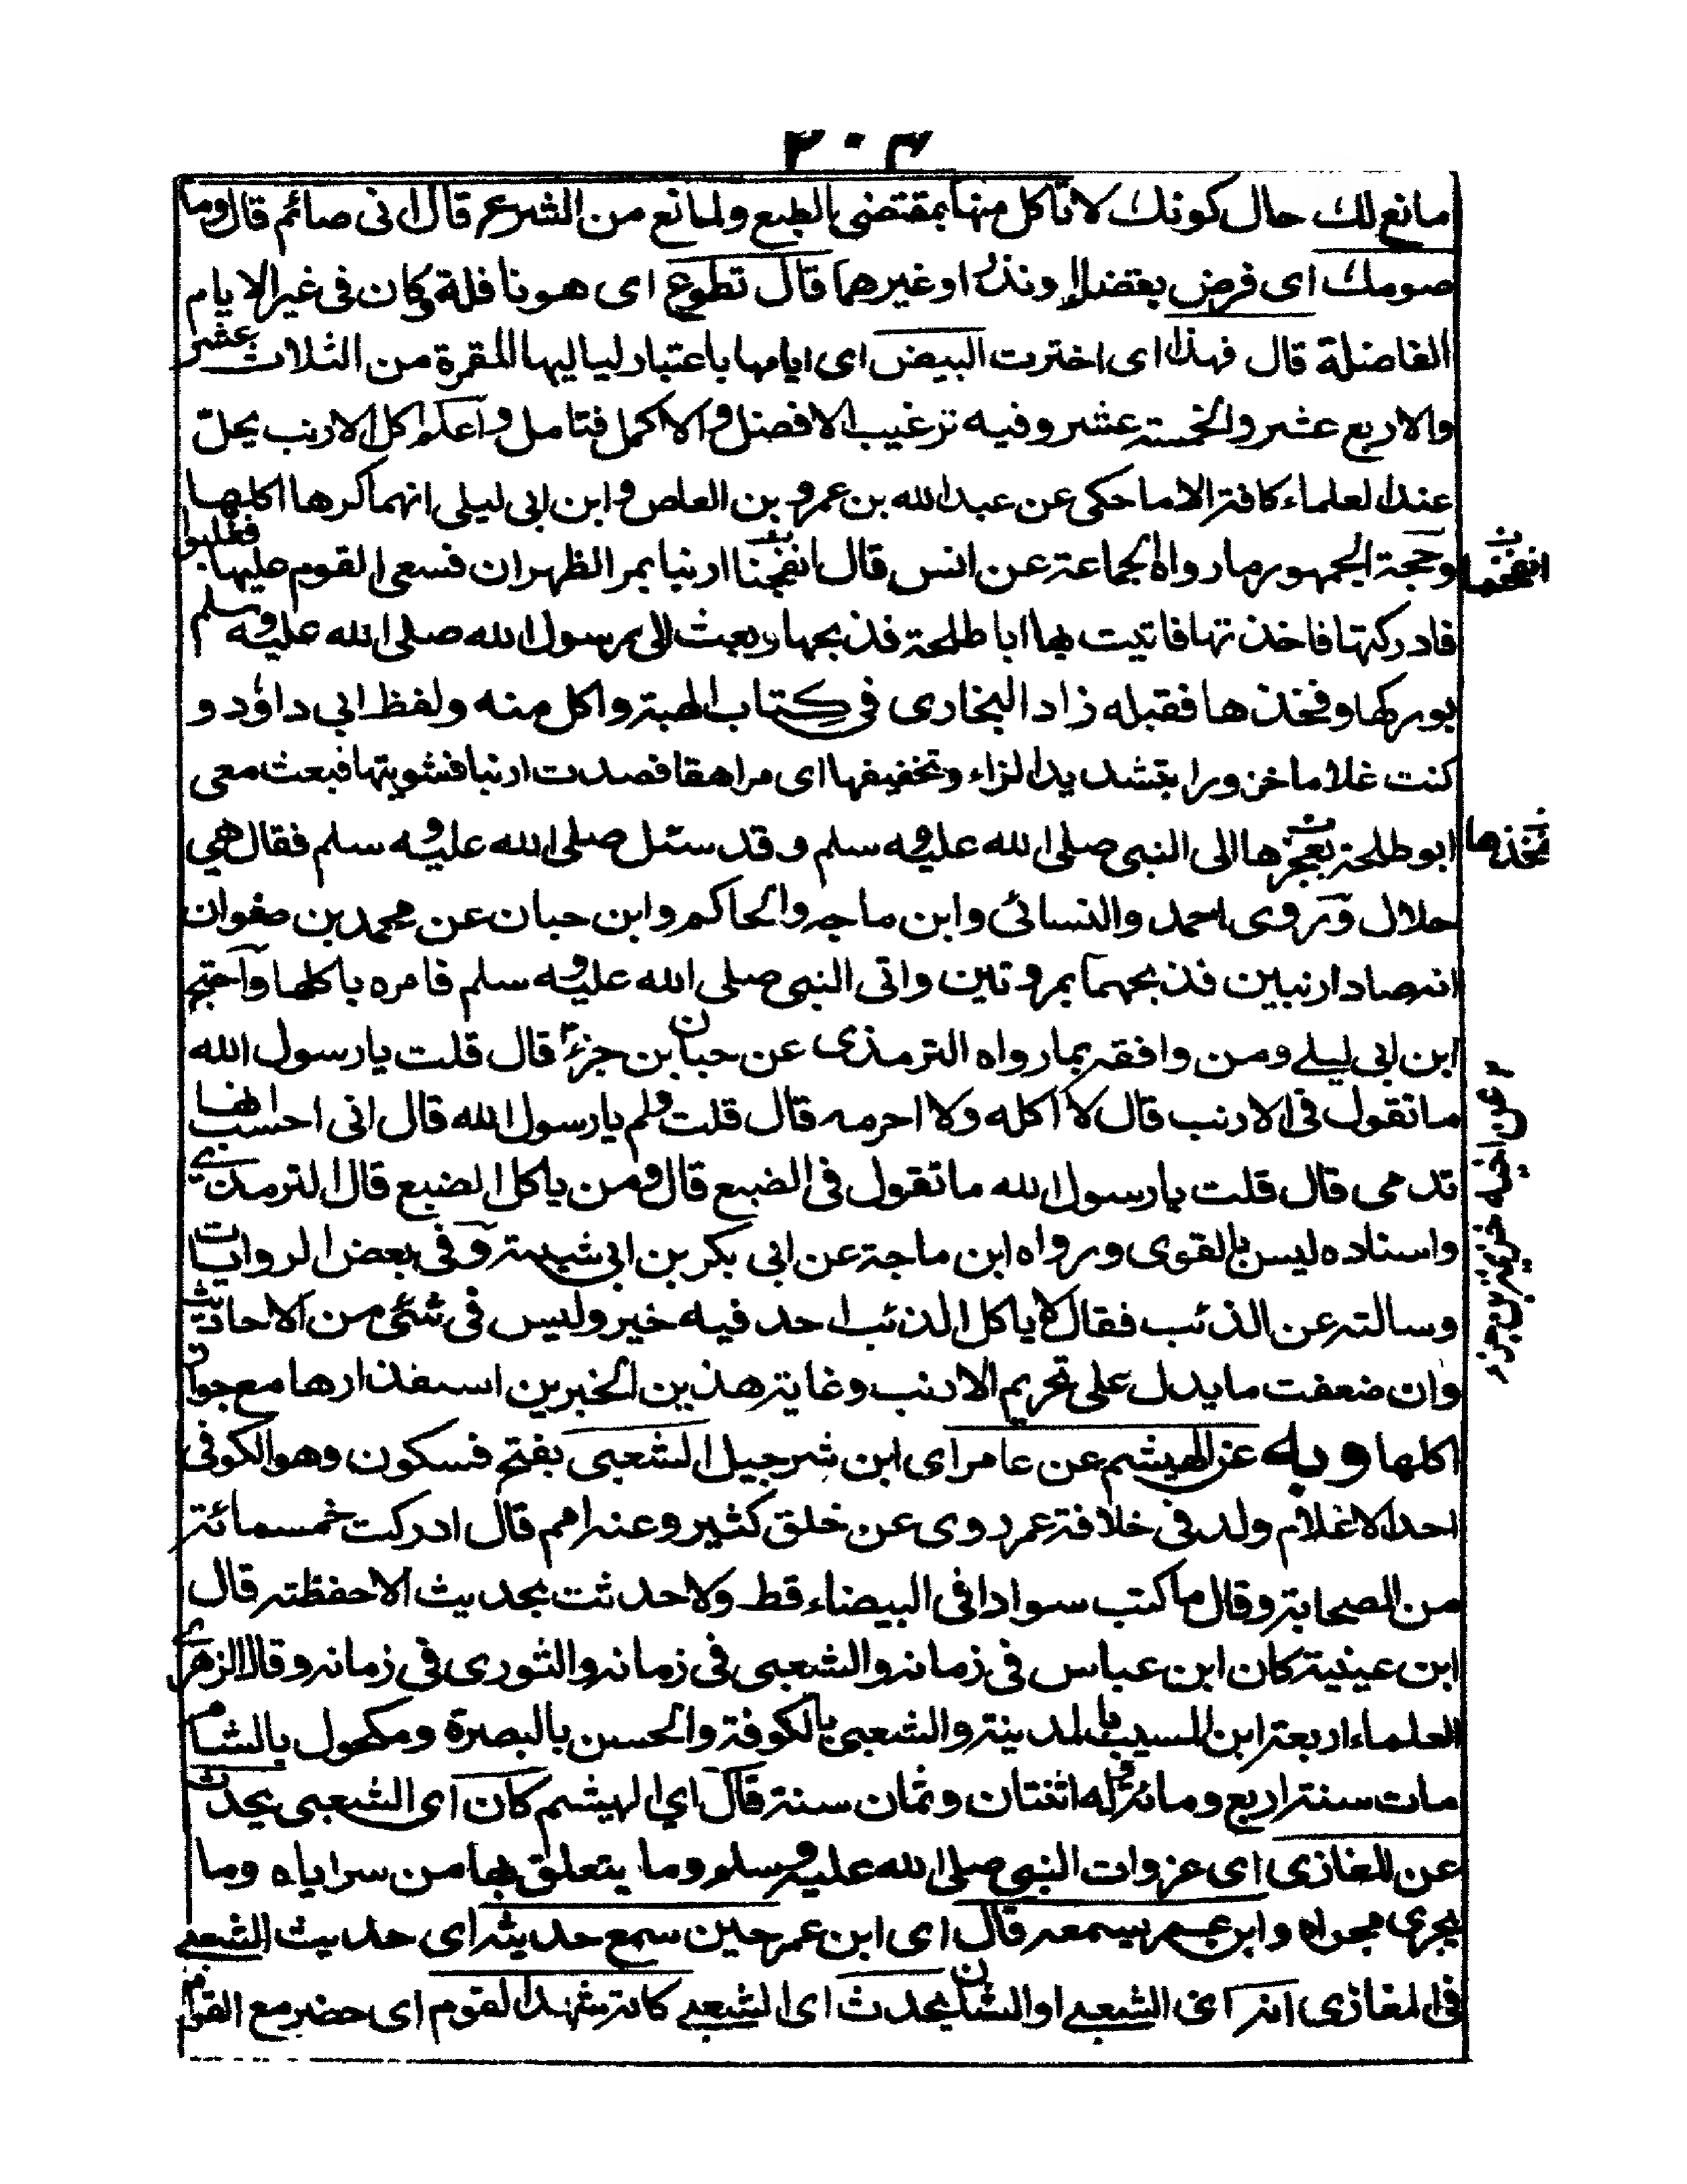 ٣٠٤
مانع لك حال كونك لا تأكل منها بمقتضى الطبع ولمانع من الشرع قال انى صائم قال وما
صومك اى فرض بقضاء ونذر او غيرهما قال تطوع اى هو نافلة وكان فى غير الايام
الفاضلة قال فهذا اى اخترت البيض اى ايامها باعتبار لياليها المقمرة من الثلاث عشر
والاربع عشر والخمسة عشر وفيه ترغيب الافضل والاكمل فتامل واعلم اكل الارنب يحل
عند العلماء كافة الا ما حكى عن عبد الله بن عمرو بن العاص وابن ابى ليلى انهما كرها اكلها
وحجة الجمهور ما رواه الجماعة عن انس قال انفجنا ارنبا بمر الظهران فسعى القوم عليها فغلبوا
فادركتها فاخذتها فاتيت بها ابا طلحة فذبحها وبعث الى رسول الله صلى الله عليه وسلم
بوركها وفخذها فقبله زاد البخارى فى كتاب الهبة واكل منه ولفظ ابى داؤد و
كنت غلاما خزورا بتشديد الزاء وتخفيفها اى مراهقا فصدت ارنبا فشويتها فبعث معى
ابو طلحة بعجزها الى النبى صلى الله عليه وسلم وقد سئل صلى الله عليه وسلم فقال هي
حلال وروى احمد والنسائى وابن ماجه والحاكم وابن حبان عن محمد بن صفوان
انه صاد ارنبين فذبحهما بمروتين واتى النبى صلى الله عليه وسلم فامره باكلها واحتج
ابن ابى ليلے ومن وافقه بما رواه الترمذى عن حبان بن جزء قال قلت يا رسول الله
ما تقول فى الارنب قال لا اكله ولا احرمه قال قلت ولم يا رسول الله قال انى احسب انها
تدمى قال قلت يا رسول الله ما تقول فى الضبع قال ومن ياكل الضبع قال الترمذي
واسناده ليس بالقوى ورواه ابن ماجة عن ابى بكر بن ابى شيبة وفى بعض الروايات
وسالته عن الذئب فقال لا ياكل الذئب احد فيه خير وليس فى شئ من الاحاديث
وان ضعفت ما يدل على تحريم الارنب وغاية هذين الخبرين استقذارها مع جواز
اكلها وبه عن الهيثم عن عامر اى ابن شرجيل الشعبى بفتح فسكون وهو الكوفى
احد الاعلام ولد فى خلافة عمر روى عن خلق كثير وعنه امم قال ادركت خمسمائة
من الصحابة وقال ما كتب سوادا فى البيضاء قط ولا حدثت بحديث الا حفظته قال
ابن عينية كان ابن عباس فى زمانه والشعبى فى زمانه والثورى فى زمانه وقال الزهرى
العلماء اربعة ابن المسيب بالمدينة والشعبى بالكوفة والحسن بالبصرة ومكحول بالشام
مات سنة اربع ومائة وله اثنتان وثمان سنة قال اي الهيثم كان اى الشعبى يحدث
عن المغازى اى غزوات النبى صلى الله عليه وسلم وما يتعلق بها من سراياه وما
يجرى مجراه وابن عمر يسمعه قال اى ابن عمر حين سمع حديثه اى حديث الشعبے
فى المغازى انه اى الشعبے او الشان يحدث اى الشعبے كانه شهد القوم اى حضر مع القوم
انفجنا
فخذها
عن اخيه خزيمة بن جزء